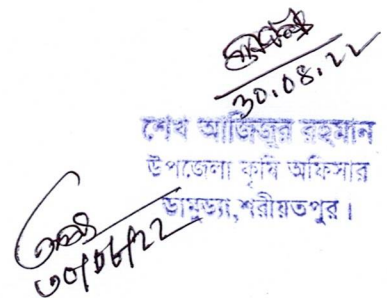 30.08.22
শেখ আজিজুর রহমান
উপজেলা কৃষি অফিসার
ডামুড্যা,শরীয়তপুর।
৩০/০৮/২২